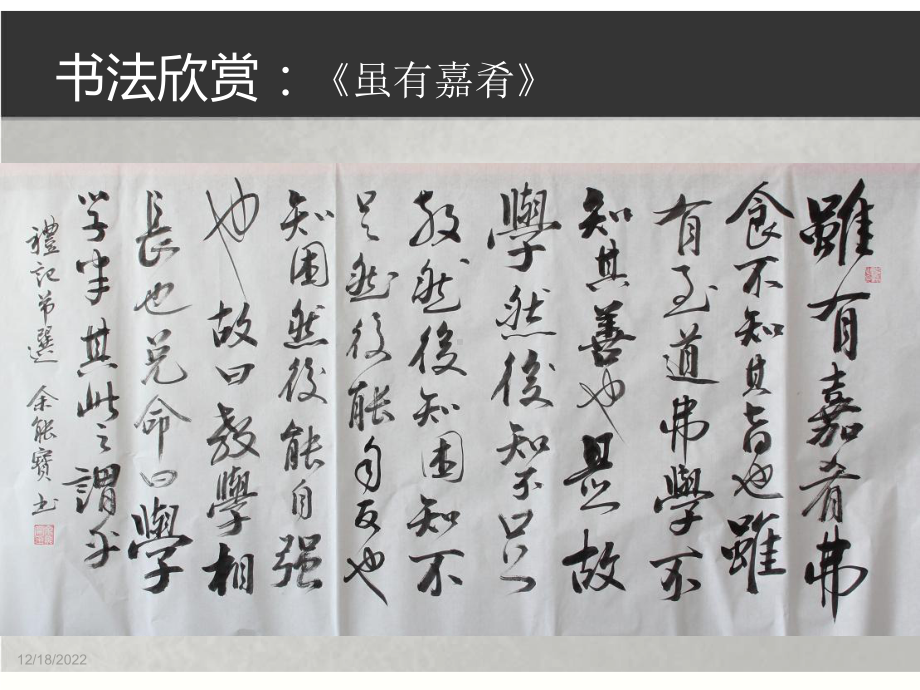 书法欣赏：《虽有嘉肴》
雖有嘉肴弗
食不知其旨也雖
有至道弗學不
知其善也是故
學然後知不足
教然後知困知不
足然後能自反也
知困然後能自强
也故曰教學相
長也兑命曰學
学半其此之謂乎
禮記节選 余能寶书
12/18/2022